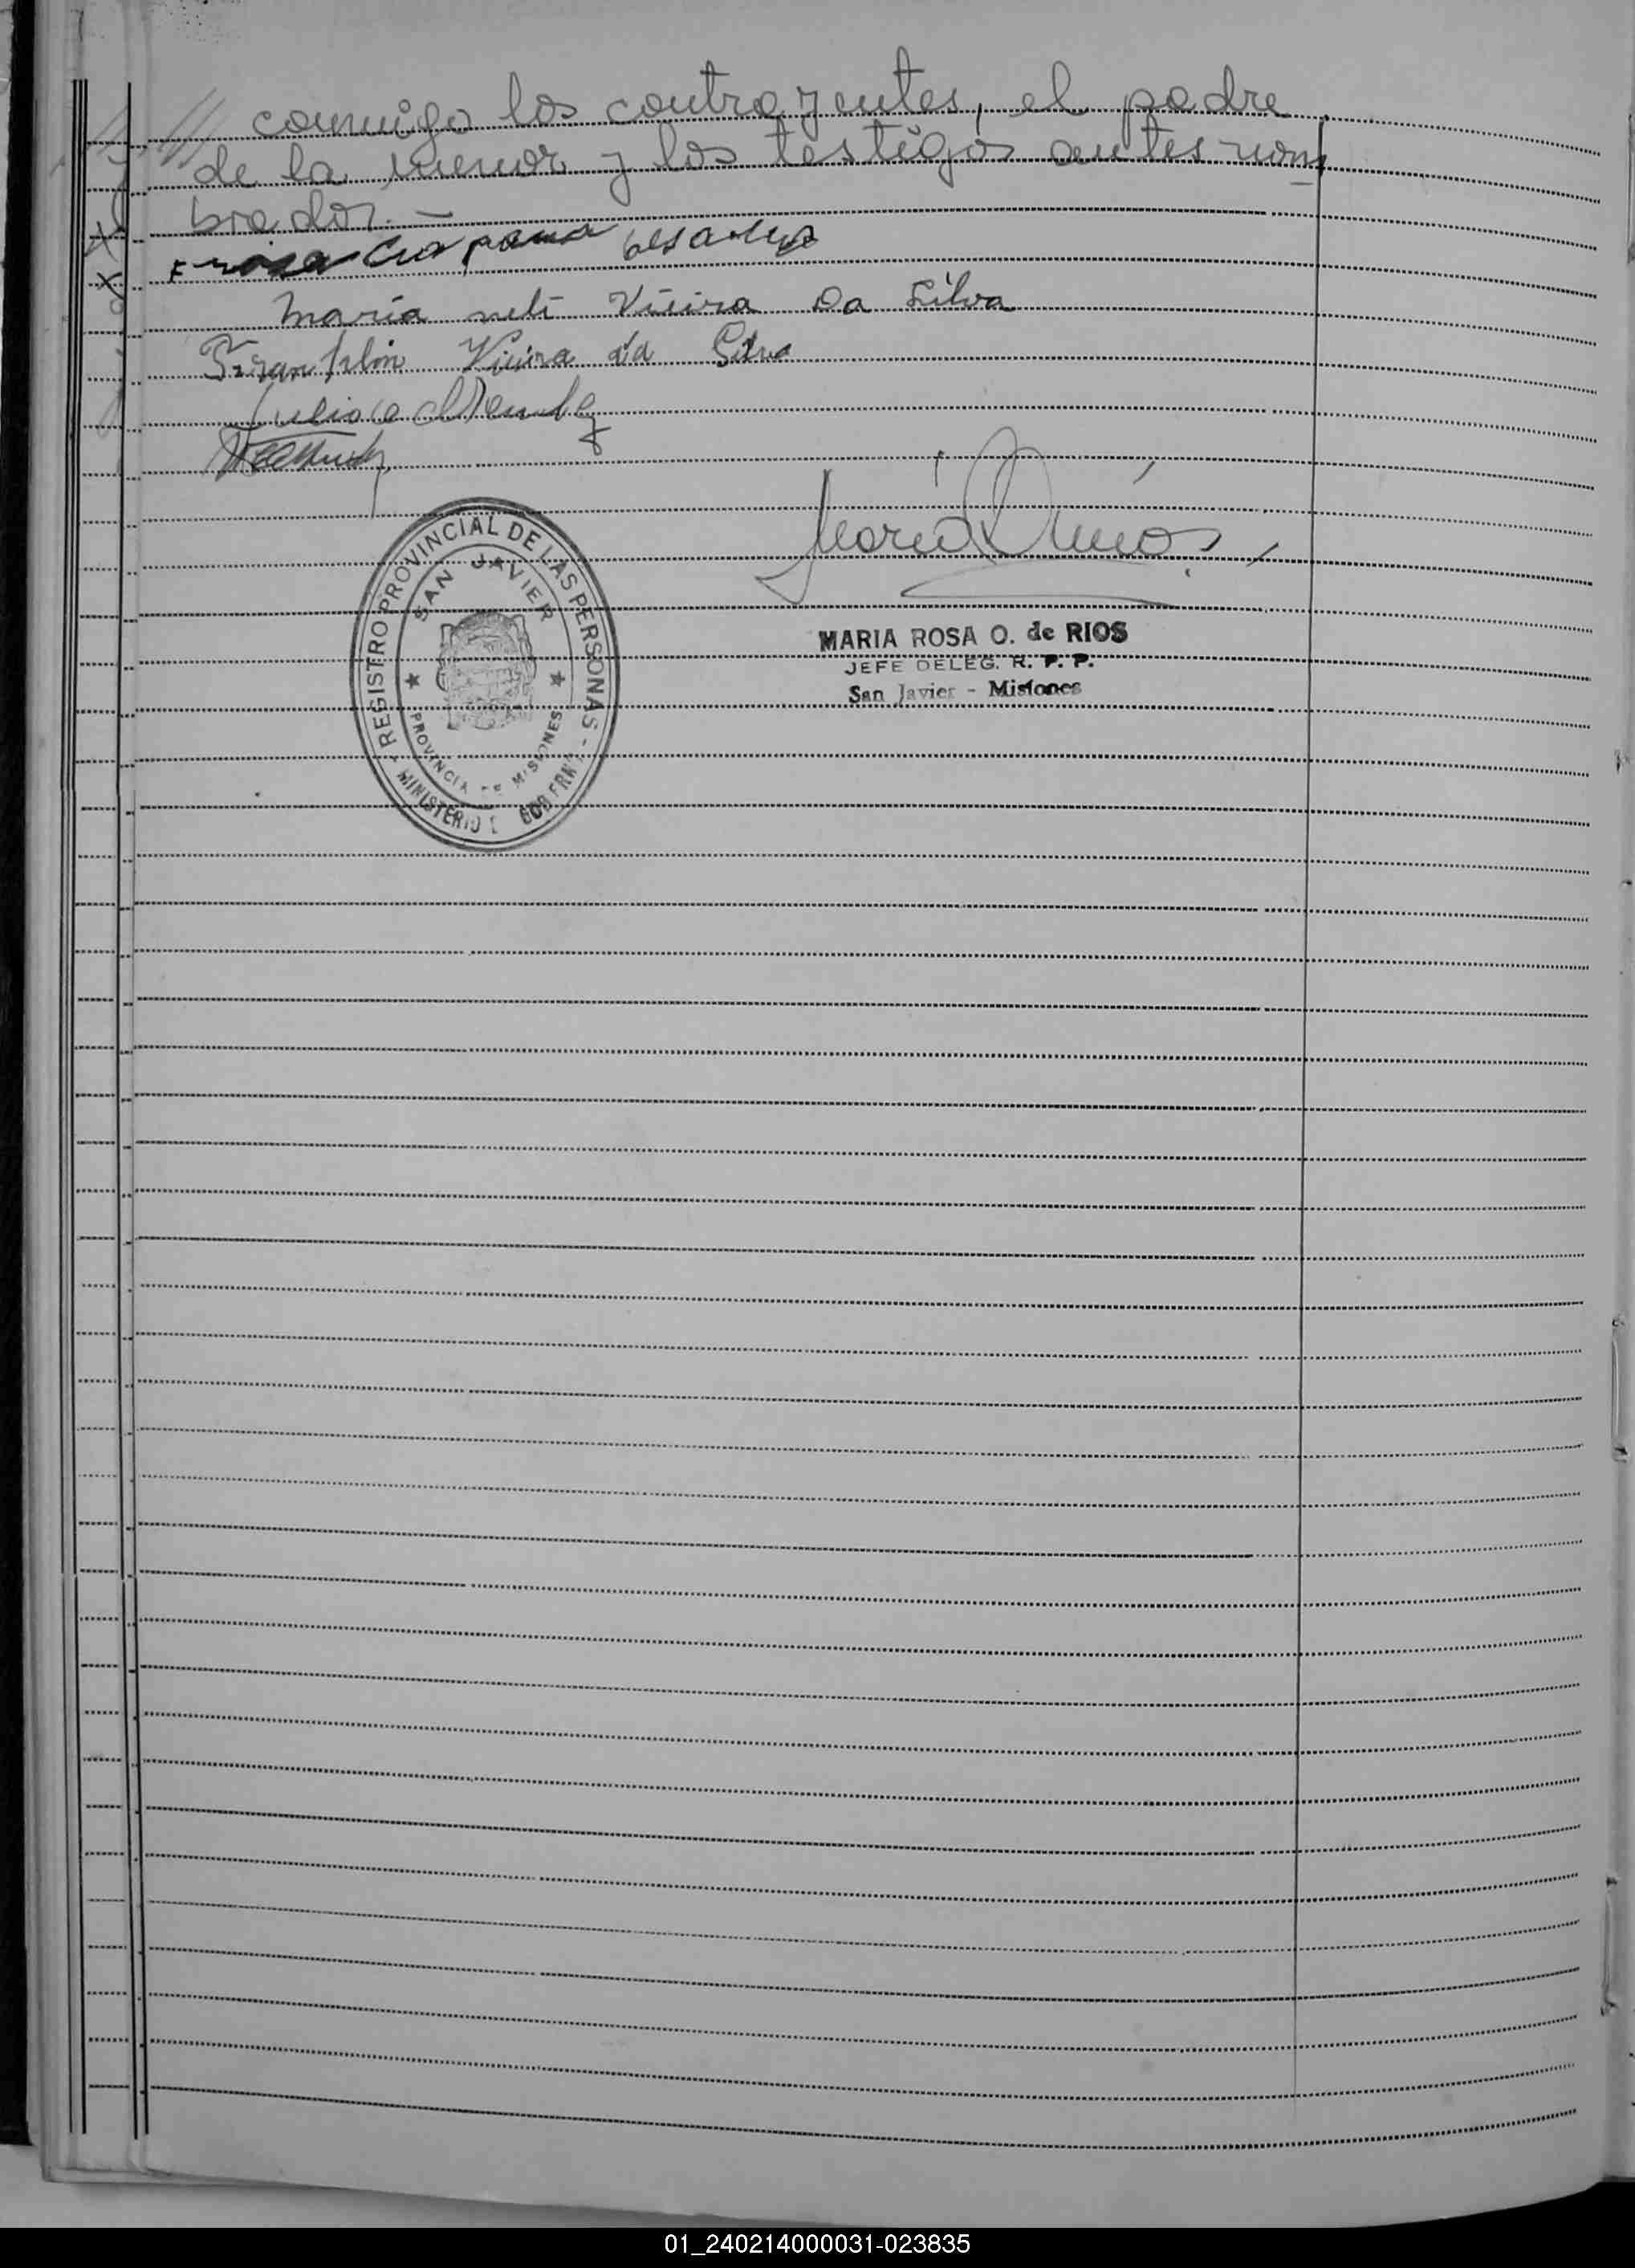 conmigo los contrayentes, el padre
de la menor y los testigos antes nom
brados.—
maria neli Vieira Da Silva
Franklin Vieira da Silva
REGISTRO PROVINCIAL DE LAS PERSONAS -
SAN JAVIER
PROVINCIA DE MISIONES
MINISTERIO
MARIA ROSA O. de RIOS
JEFE DELEG. R. P. P.
San Javier - Misiones
01_240214000031-023835